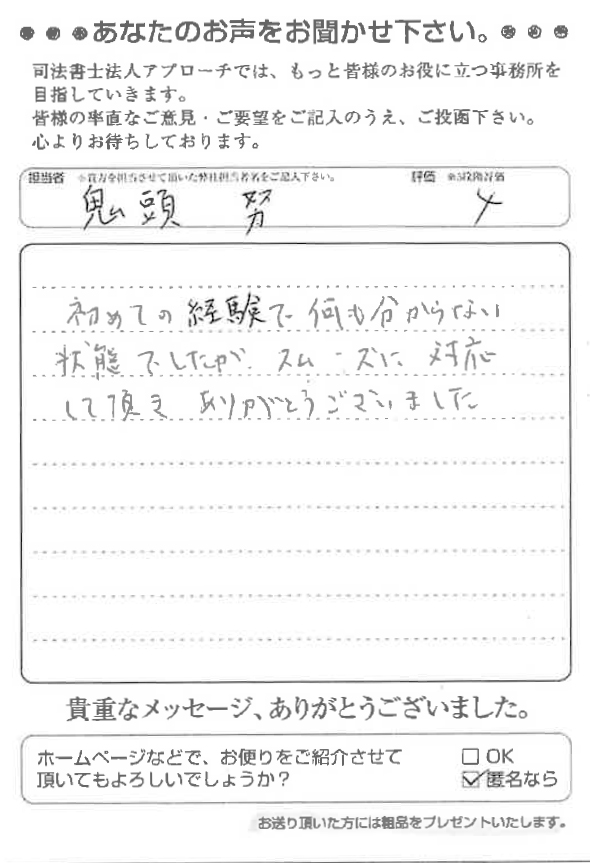 あなたのお声をお聞かせ下さい。
司法書士法人アプローチでは、もっと皆様のお役に立つ事務所を
目指していきます。
皆様の率直なご意見・ご要望をご記入のうえ、ご投函下さい。
心よりお待ちしております。
担当者 ※貴方を担当させて頂いた弊社担当者名をご記入下さい。 評価 ※5段階評価
鬼頭 努 4
初めての経験で何も分からない
状態でしたが、スムーズに対応
して頂き ありがとうございました
貴重なメッセージ、ありがとうございました。
ホームページなどで、お便りをご紹介させて
頂いてもよろしいでしょうか？
□ OK
☑ 匿名なら
お送り頂いた方には粗品をプレゼントいたします。